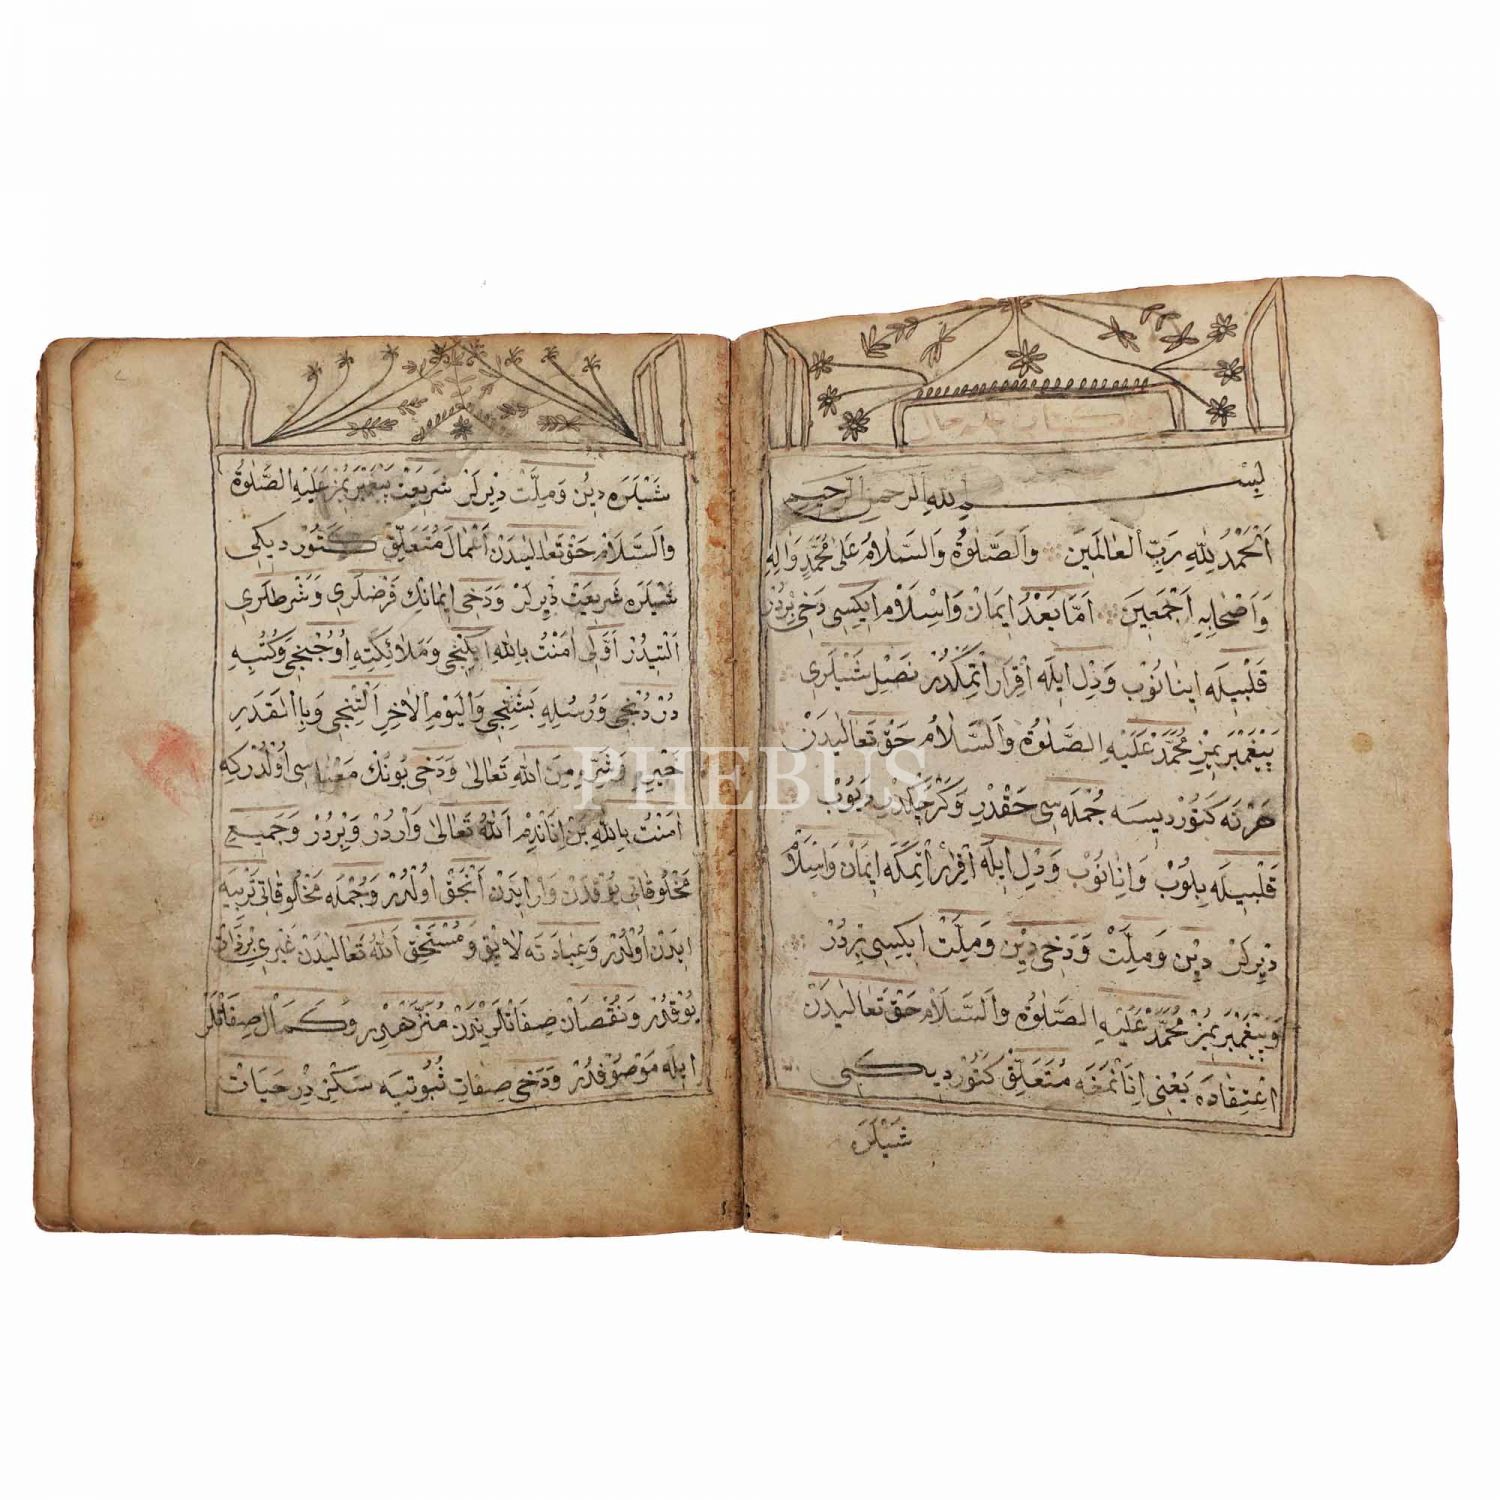 بسم الله الرحمن الرحيم
اَلْحَمْدُ لِلّٰهِ رَبِّ الْعَالَمِينَ وَالصَّلٰوةُ وَالسَّلَامُ عَلٰى مُحَمَّدٍ وَاٰلِهِ
وَاَصْحَابِهِ اَجْمَعِينَ اَمَّا بَعْدُ اِيمَانْ وَاِسْلَامْ ايكِيسِى دَخِى بِرْدُرْ
قَلْبِيلَه اِينَانُوبْ وَدِلْ اِيلَه اِقْرَارْ اِتْمَكْدُرْ نَصِيلْ شَيْلَرِى
پَيْغَمْبَرِيمِزْ مُحَمَّدْ عَلَيْهِ الصَّلٰوةُ وَالسَّلَامُ حَقْ تَعَالٰيدَنْ
هَرْنَه كَتُورْدِيسَه جُمْلَه سِى حَقْدِرْ وَكَرْچَكْدِرْ دِيُوبْ
قَلْبِيلَه بِلُوبْ وَاِنَانُوبْ وَدِلْ اِيلَه اِقْرَارْ اِتْمَكَه اِيمَانْ وَاِسْلَامْ
دِيرْلَرْ دِينْ وَمِلَّتْ وَدَخِى دِينْ وَمِلَّتْ اِيكِيسِى بِرْدُرْ
وَپَيْغَمْبَرِيمُزْ مُحَمَّدْ عَلَيْهِ الصَّلٰوةُ وَالسَّلَامْ حَقْ تَعَالٰيدَنْ
اِعْتِقَادَه يَعْنِى اِنَانْمَغَه مُتَعَلِّقْ كَتُورْدِيكِى
شَيْلَرَه
شَيْلَرَه دِينْ وَمِلَّتْ دِيرْلَرْ شَرِيعَتْ پَيْغَمْبَرِيمُزْ عَلَيْهِ الصَّلٰوةُ
وَالسَّلَامْ حَقْ تَعَالٰيدَنْ اَعْمَالَ مُتَعَلِّقْ كَتُورْدِيكِى
شَيْلَرَه شَرِيعَتْ دِيرْلَرْ وَدَخِى اِيمَانِكْ فَرْضلَرِى وَشَرْطلَرِى
اَلْتِيدُرْ اَوَّلِى اٰمَنْتُ بِاللّٰهِ اِيكِنْجِى وَمَلَائِكَتِهِ اُوچُنْجِى وَكُتُبِهِ
دُرْدُنْجِى وَرُسُلِهِ بَشِنْجِى وَالْيَوْمِ الْاٰخِرِ اَلْتِنْجِى وَبِالْقَدَرِ
خَيْرِهِ وَشَرِّهِ مِنَ اللّٰهِ تَعَالٰى وَدَخِى بُونُكْ مَعْنَاسِى اُولْدُرْكِه
اٰمَنْتُ بِاللّٰهِ بَنْ اِنَانْدِمْ اَللّٰهُ تَعَالٰى وَارْدُرْ وَبِرْدُرْ وَجَمِيعِ
مَخْلُوقَاتِى يُوقْدَنْ وَارْ اِيدَنْ اَنْجَقْ اُولْدُرْ وَجُمْلَه مَخْلُوقَاتِى تَرْبِيَه
اِيدَنْ اُولْدُرْ وَعِبَادَتَه لَايِقْ وَمُسْتَحِقْ اَللّٰهُ تَعَالٰيدَنْ غَيْرِى بِرْ ذَاتْ
يُوقْدُرْ وَنُقْصَانْ صِفَاتْلَرِينْدَنْ مُنَزَّهْدِرْ وَكَمَالْ صِفَاتْلَرْ
اِيلَه مَوْصُوفْدُرْ وَدَخِى صِفَاتِ ثُبُوتِيَه سَكِزْدِرْ حَيَاتْ
PHEBUS